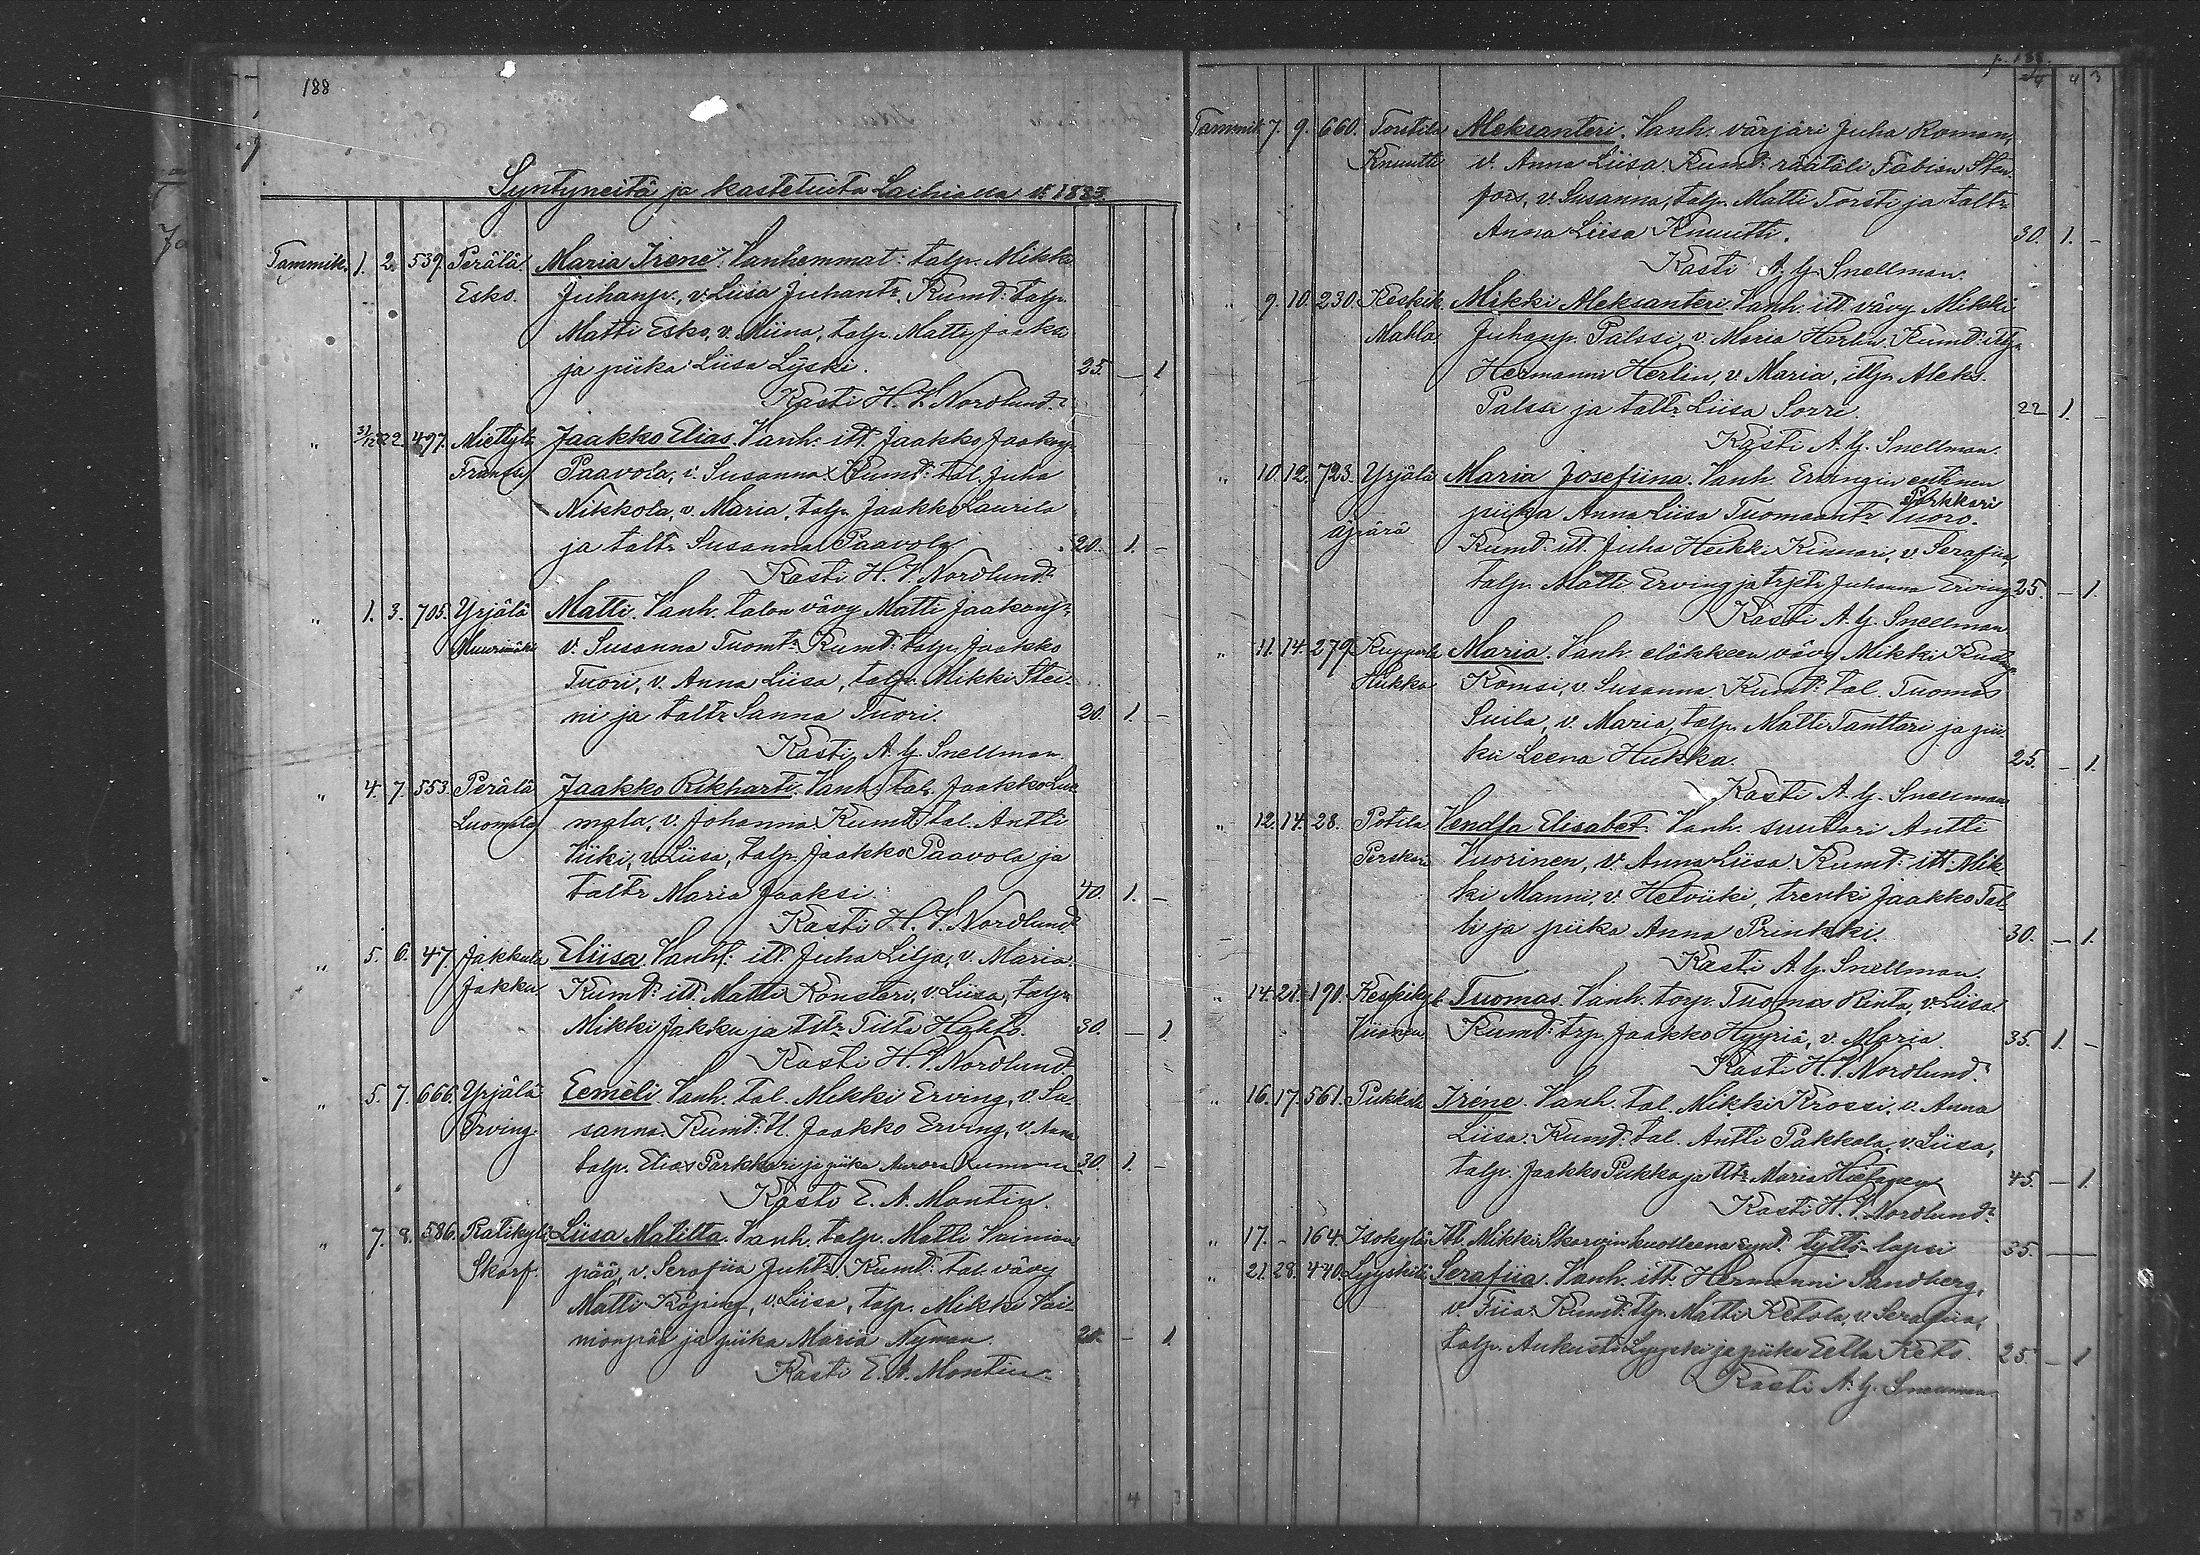 188
Syntyneitä ja kastetuita Laihialla v. 1883.
Tammik. 1. 2. 539. Perälä Maria Irene. Vanhemmat: talp. Mikki
Esko. Juhanp., v. Liisa Juhantr. Kumd: talp.
Matti Esko, v. Miina, talp. Matti Jaaksi
ja piika Liisa Lyski. 25. — 1
Kasti H. V. Nordlund.
„ 31/12 82 2. 497. Miettylä Jaakko Elias. Vanh: itt. Jaakko Jaakonp.
Franssi Paavola, v. Susanna. Kumd: tal. Juha
Nikkola, v. Maria, talp. Jaakko Laurila
ja taltr. Susanna Paavola 20. 1. –
Kasti H. V. Nordlund.
„ 1. 3. 705. Yrjälä Matti. Vanh. talon vävy Matti Jaakonp.
Muurimäki v. Susanna Tuomtr. Kumd: talp. Jaakko
Tuori, v. Anna Liisa, talp. Mikki Stei-
ni ja taltr. Sanna Tuori. 20. 1. –
Kasti A. G. Snellman.
„ 4. 7. 553. Perälä Jaakko Rikharti. Vanh: tal. Jaakko Luo-
Luomala mala, v. Johanna. Kumd: tal. Antti
Viiki, v. Liisa, talp. Jaakko Paavola ja
taltr. Maria Jaaksi. 40. 1. –
Kasti H. V. Nordlund.
„ 5. 6. 47. Jakkula Eliisa. Vanh: itt. Juha Lilja, v. Maria.
Jakku Kumd: itt. Matti Konsteri, v. Liisa, talp.
Mikki Jakku ja titr. Tilta Hahto. 30. — 1
Kasti H. V. Nordlund.
„ 5. 7. 666. Yrjälä Eemeli. Vanh. tal. Mikki Erving, v. Su-
Erving. sanna. Kumd: tl. Jaakko Erving, v. Anna
talp. Elias Parkkari ja piika Aurora 30. 1. –
Kasti E. A. Montin.
„ 7. 8. 586. Ratikylä Liisa Matilta. Vanh. talp. Matti Vainion
Skarf. pää, v. Serafiia Juhtr. Kumd: tal. vävy
Matti Köping, v. Liisa, talp. Mikki Vai-
nionpää ja piika Maria Nyman. 20. — 1
Kasti E. A. Montin.
4 3
p. 188.
4 3
Tammik. 7. 9. 660. Torstila Aleksanteri. Vanh: värjäri Juha Roman,
Knuutti v. Anna Liisa. Kumd: räätäli Fabian Sten-
fors, v. Susanna, talp. Matti Torsti ja taltr.
Anna Liisa Knuutti. 30. 1. –
Kasti A. G. Snellman.
„ 9. 10. 230. Keskik. Mikki Aleksanteri. Vanh. itt. vävy Mikki
Makla Juhanp. Palssi, v. Maria Herlin. Kumd: ittp.
Hermanni Herlin, v. Maria, ittp. Aleks.
Palssi ja taltr. Liisa Sorri. 22 1. –
Kasti A. G. Snellman.
„ 10. 12. 723. Yrjälä Maria Josefiina. Vanh. Ervingin entinen
Parkkari
äpärä piika Anna Liisa Tuomaantr. Tuoro.
Kumd: itt. Juha Heikki Kinnari, v. Serafiia,
talp. Matti Erving ja trptr. Juhanna Erving 25. — 1.
Kasti A. G. Snellman
„ 11. 14. 279. Kupparla Maria. Vanh. eläkkeen vävy Mikki
Hukka Komsi, v. Susanna. Kumd: tal. Tuomas
Suila, v. Maria, talp. Matti Tanttari ja pii-
ka Leena Hukka. 25. – 1.
Kasti A. G. Snellman
„ 12. 14. 28. Potila Vendla Elisabet. Vanh. suutari Antti
Perskan Vuorinen, v. Anna Liisa. Kumd: itt. Mik-
ki Manni, v. Hetviiki, trenki Jaakko Tal-
li ja piika Anna Prinkki. 30. — 1.
Kasti A. G. Snellman.
„ 14. 21. 190. Keskikyl. Tuomas. Vanh. torp. Tuomas Rinta, v. Liisa.
Kumd: trp. Jaakko Hyyriä, v. Maria. 35. 1. –
Kasti H. V. Nordlund.
„ 16. 17. 561. Pukkila Irene. Vanh. tal. Mikki Krossi, v. Anna
Liisa. Kumd: tal. Antti Pakkala, v. Liisa,
talp. Jaakko Pukka ja tltr. Maria Hietanen 45. — 1.
Kasti H. V. Nordlund.
„ 17. – 164. Isokylä Itt. Mikki Skarvin kuolleena synd. tyttö-lapsi 35. —
„ 21. 28. 440. Lyyskilä Serafiia. Vanh. itt. Hermanni Sandberg,
v. Fiia. Kumd: tlp. Matti Ketola, v. Serafiia,
talp. Aukusti Lyyski ja piika Eella Keto. 25. – 1
Kasti A. G. Snellman.
7 8